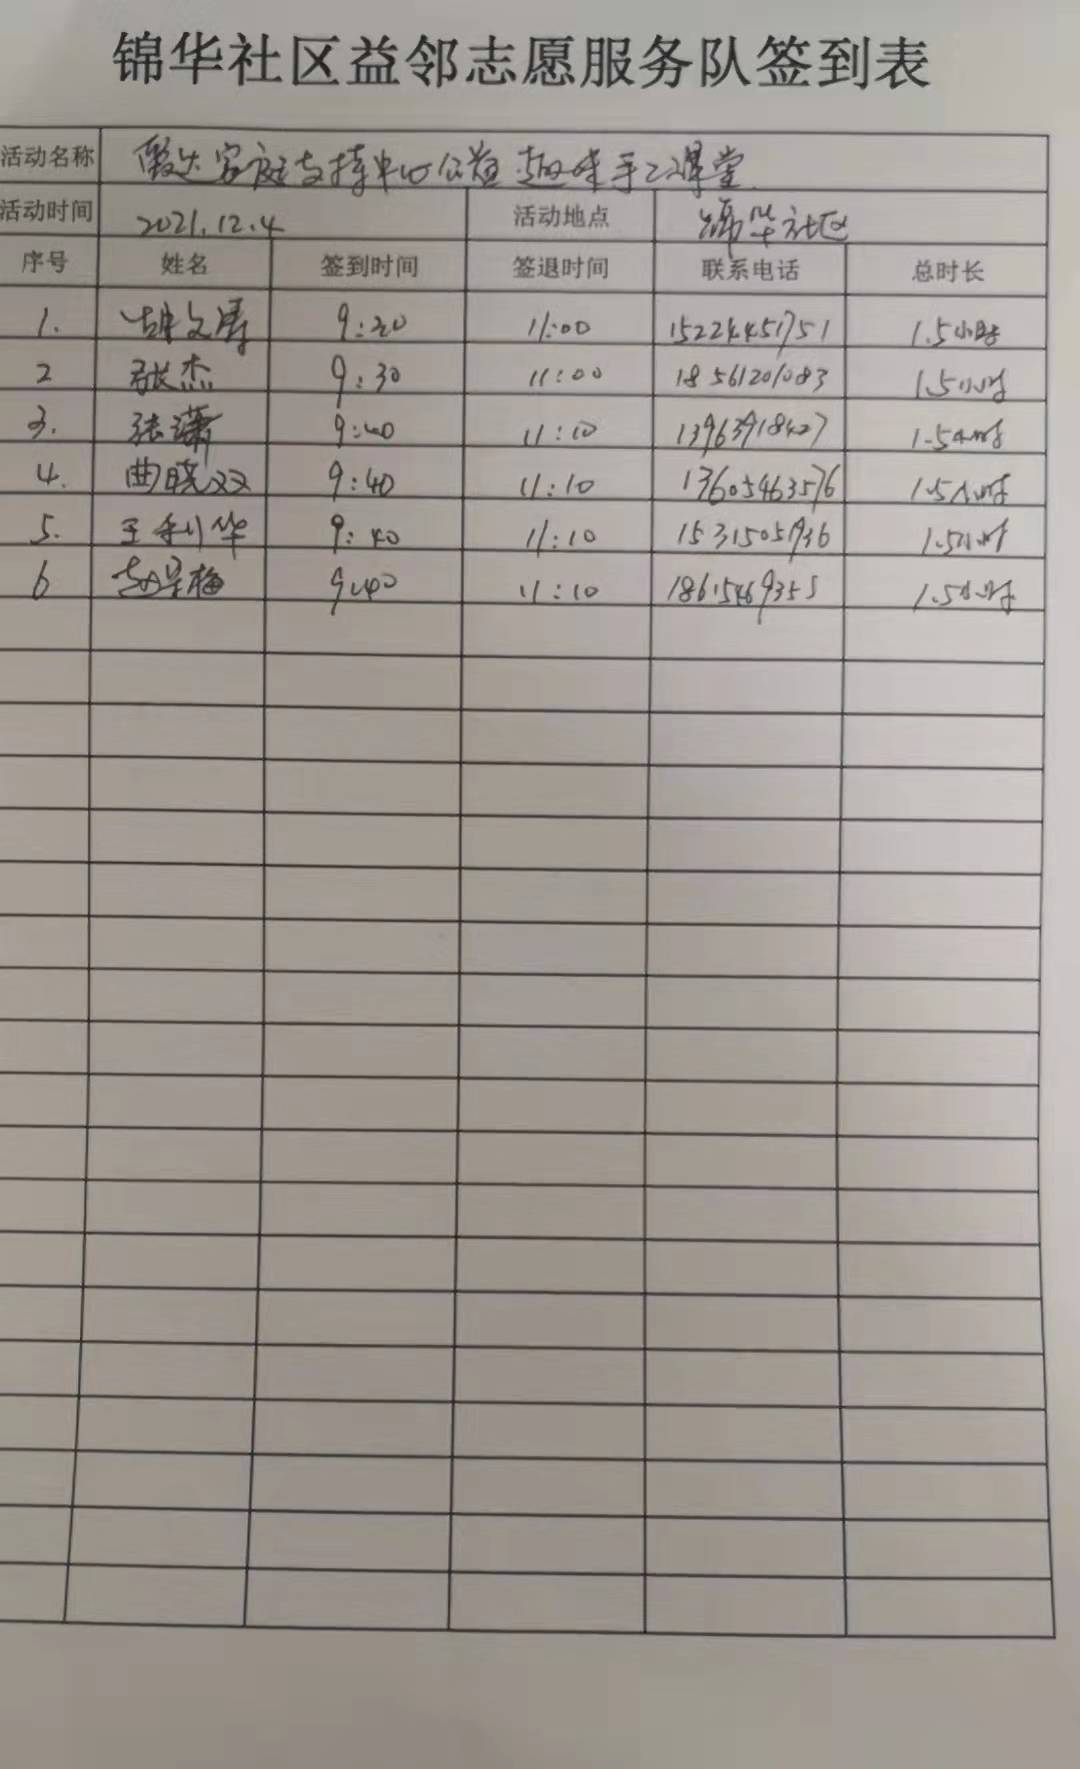 锦华社区益邻志愿服务队签到表
活动名称 家庭支持中心公益趣味手工课堂
活动时间 2021.12.4 活动地点 锦华社区
序号 姓名 签到时间 签退时间 联系电话 总时长
1. 胡文涛 9:30 11:00 15224451751 1.5小时
2 张杰 9:30 11:00 18561201083 1.5小时
3. 张潇 9:40 11:10 13963918427 1.5小时
4. 曲晓双 9:40 11:10 13605463576 1.5小时
5. 王利华 9:40 11:10 15315051936 1.5小时
6 9:40 11:10 18615469355 1.5小时